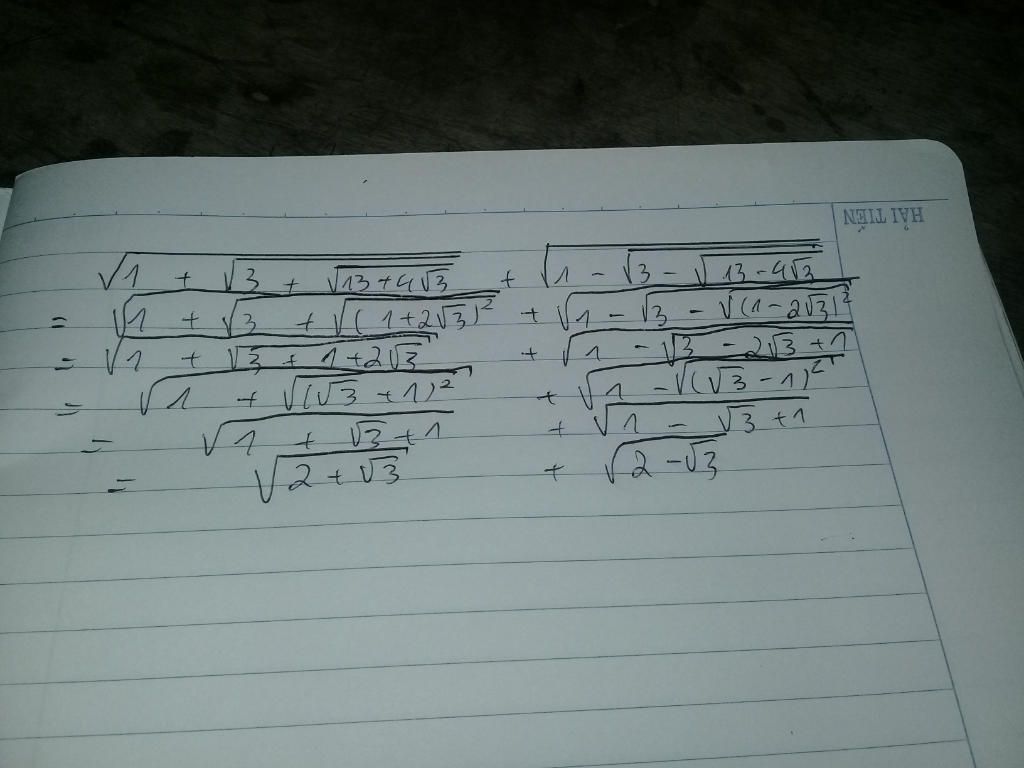 HẢI TIẾN
√(1 + √(3 + √(13+4√3))) + √(1 - √(3 - √(13-4√3)))
= √(1 + √(3 + √((1+2√3)²))) + √(1 - √(3 - √((1-2√3)²)))
= √(1 + √(3 + 1+2√3)) + √(1 - √(3 - 2√3+1))
= √(1 + √((√3+1)²)) + √(1 - √((√3-1)²))
= √(1 + √3+1) + √(1 - √3+1)
= √(2+√3) + √(2-√3)